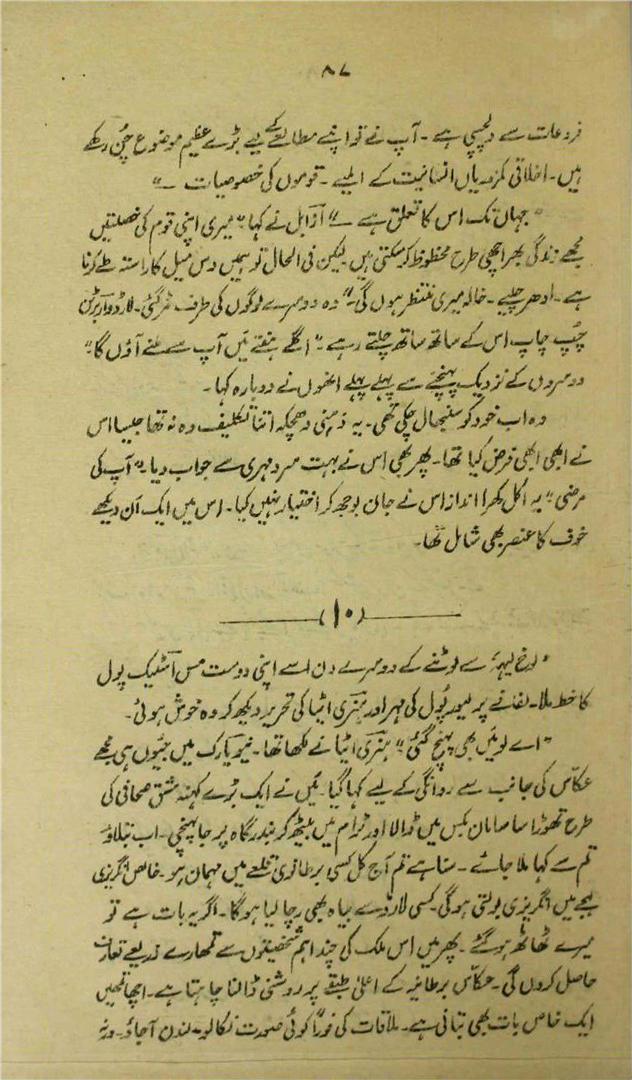 ۸۷
فروعات سے دلچسپی ہے۔ آپ نے تو اپنے مطالعے کے لیے بڑے عظیم موضوع چن رکھے
ہیں۔ اخلاقی کمزوریاں انسانیت کے المیے۔ قوموں کی خصوصیات ــ"
"جہاں تک اس کا تعلق ہے ــ" ازابل نے کہا "میری اپنی قوم کی خصلتیں
مجھے زندگی بھر اچھی طرح محظوظ کر سکتی ہیں لیکن فی الحال تو ہمیں دس میل کا راستہ طے کرنا
ہے۔ ادھر چلیے۔ خالہ میری منتظر ہوں گی۔" وہ دوسرے لوگوں کی طرف مڑ گئی۔ لارڈ واربرٹن
چُپ چاپ اس کے ساتھ ساتھ چلتے رہے۔ "اگلے ہفتے میں آپ سے ملنے آؤں گا۔"
دوسروں کے نزدیک پہنچنے سے پہلے پہلے انھوں نے دوبارہ کہا۔
وہ اب خود کو سنبھال چکی تھی۔ یہ ذہنی دھچکہ اتنا تکلیف دہ نہ تھا جیسا اس
نے ابھی ابھی فرض کیا تھا۔ پھر بھی اس نے بہت سرد مہری سے جواب دیا۔ "آپ کی
مرضی" یہ اکل کھرا انداز اس نے جان بوجھ کر اختیار نہیں کیا۔ اس میں ایک ان دیکھے
خوف کا عنصر بھی شامل تھا۔
(۱۰)
"لوخ لیہہ" سے لوٹنے کے دوسرے دن اسے اپنی دوست مس اسٹیک پول
کا خط ملا۔ لفافے پر لیورپُول کی مہر اور ہنری اٹیا کی تحریر دیکھ کر وہ خوش ہوئی۔
"اے لو میں بھی پہنچ گئی" ہنری اٹیا نے لکھا تھا۔ نیویارک میں جیوں ہی مجھے
عکّاس کی جانب سے روانگی کے لیے کہا گیا۔ میں نے ایک بڑے کہنہ مشق صحافی کی
طرح تھوڑا سا سامان بکس میں ڈالا اور ٹرام میں بیٹھ کر بندرگاہ پر جا پہنچی۔ اب بتلاؤ
تم سے کہا ملا جائے۔ سنا ہے تم آج کل کسی برطانوی قلعے میں مہمان ہو۔ خالص انگریزی
لہجے میں انگریزی بولتی ہوگی۔ کسی لارڈ سے بیاہ بھی رچا لیا ہوگا۔ اگر یہ بات ہے تو
میرے ٹھاٹھ ہو گئے۔ پھر میں اس ملک کی چند اہم شخصیتوں سے تمھارے ذریعے تعارف
حاصل کروں گی۔ عکّاس برطانیہ کے اعلیٰ طبقے پر روشنی ڈالنا چاہتا ہے۔ اچھا تمھیں
ایک خاص بات بھی بتانی ہے۔ ملاقات کی فوراً کوئی صورت نکالو۔ لندن آجاؤ۔ ورنہ